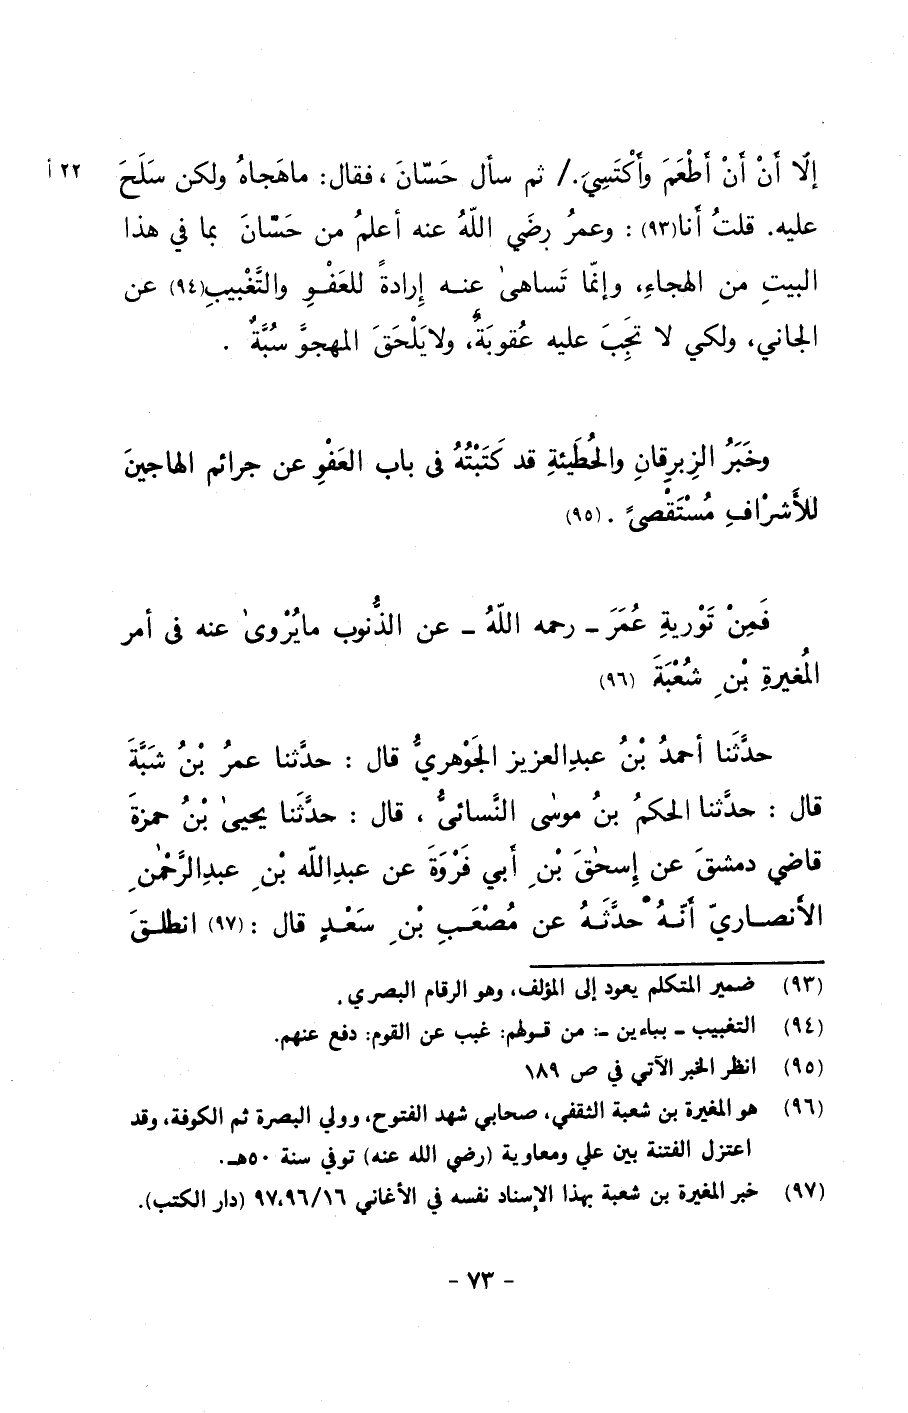 إلّا أَنْ أَنْ أَطْعَمَ وأَكْتَسِيَ./ ثم سأل حَسّانَ ، فقال: ماهَجاهُ ولكن سَلَحَ ٢٢ أ
عليه. قلتُ أَنا(٩٣) : وعمرُ رضَي اللّهُ عنه أعلمُ من حَسّانَ بما في هذا
البيتِ من الهجاءِ، وإنّما تَساهىٰ عنـه إِرادةً للعَفْـوِ والتَّغْبيبِ(٩٤) عن
الجاني، ولكي لا تَجِبَ عليه عُقوبَةٌ، ولايَلْحَقَ المهجوَّ سُبَّةٌ .
وخَبَرُ الزِبرِقانِ والحُطَيئةِ قد كَتَبْتُهُ فى باب العَفْوِ عن جرائم الهاجينَ
للأَشرْافِ مُسْتَقْصىً . (٩٥)
فَمِنْ تَوْريةِ عُمَرَ ـ رحمه اللّهُ ـ عن الذُّنوب مايُرْوىٰ عنه فى أمر
المُغيرةِ بْنِ شُعْبَةَ (٩٦)
حدَّثَنا أحمدُ بْنُ عبدِالعزيز الجَوْهريُّ قال : حدَّثنا عمرُ بْنُ شَبَّةَ
قال : حدَّثنا الحكمُ بنُ موسٰى النَّسائىُّ ، قال : حدَّثَنا يحيىٰ بْنُ حمزةَ
قاضي دمشقَ عن إِسحٰقَ بْنِ أَبي فَرْوَةَ عن عبدِاللّه بْنِ عبدِالرَّحْمٰنِ
الأَنصـاريّ أَنّـهُ حدَّثَـهُ عن مُصْعَبِ بْنِ سَعْـدٍ قال : (٩٧) انطلـقَ
(٩٣) ضمير المتكلم يعود إلى المؤلف، وهو الرقام البصري.
(٩٤) التغبيب ـ بباءين ـ: من قـولهم: غبب عن القوم: دفع عنهم.
(٩٥) انظر الخبر الآتي في ص ١٨٩
(٩٦) هو المغيرة بن شعبة الثقفي، صحابي شهد الفتوح، وولي البصرة ثم الكوفة، وقد
اعتزل الفتنة بين علي ومعاوية (رضي الله عنه) توفي سنة ٥٠هـ.
(٩٧) خبر المغيرة بن شعبة بهذا الإسناد نفسه في الأغاني ١٦/٩٦،٩٧ (دار الكتب).
- ٧٣ -